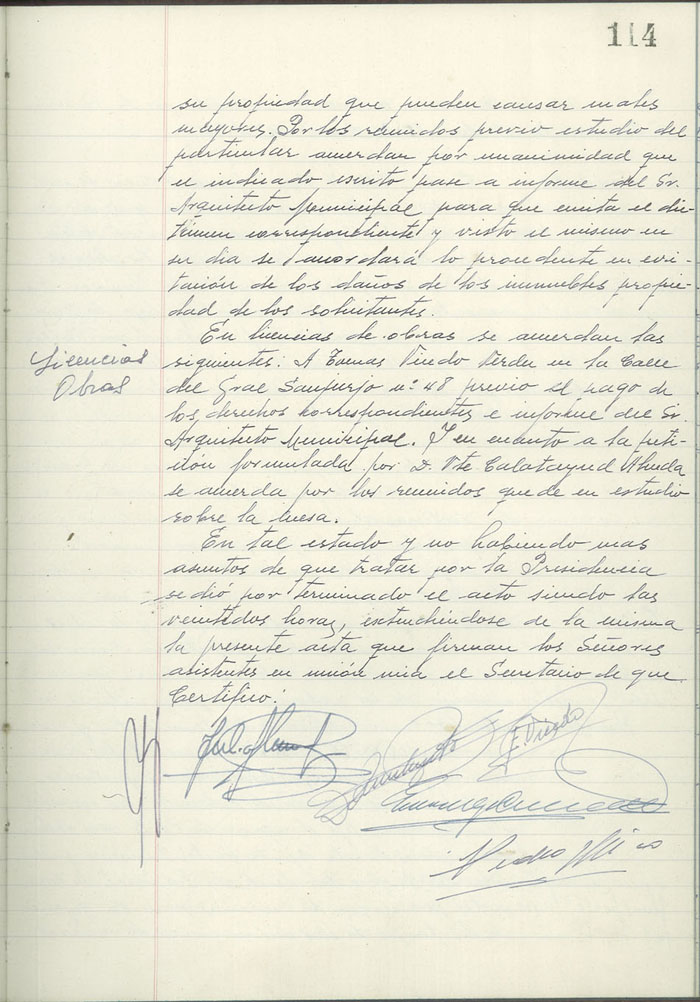 114
su propiedad que pueden causar males
mayores. Por los reunidos previo estudio del
particular acuerdan por unanimidad que
el indicado escrito pase a informe del Sr.
Arquitecto Municipal para que emita el dic-
támen correspondiente y visto el mismo en
su dia se acordará lo procedente en evi-
tación de los daños de los inmuebles propie-
dad de los solicitantes.
Licencias
Obras
En licencias de obras se acuerdan las
siguientes: A Tomas Verdu en la Calle
del Gral Sanjurjo nº 48 previo el pago de
los derechos correspondientes e informe del Sr.
Arquitecto Municipal. Y en cuanto a la peti-
ción formulada por D. Vte Calatayud
se acuerda por los reunidos quede en estudio
sobre la mesa.
En tal estado y no habiendo mas
asuntos de que tratar por la Presidencia
se dió por terminado el acto siendo las
veintidos horas, extendiéndose de la misma
la presente acta que firman los Señores
asistentes en unión mia el Secretario de que
Certifico.